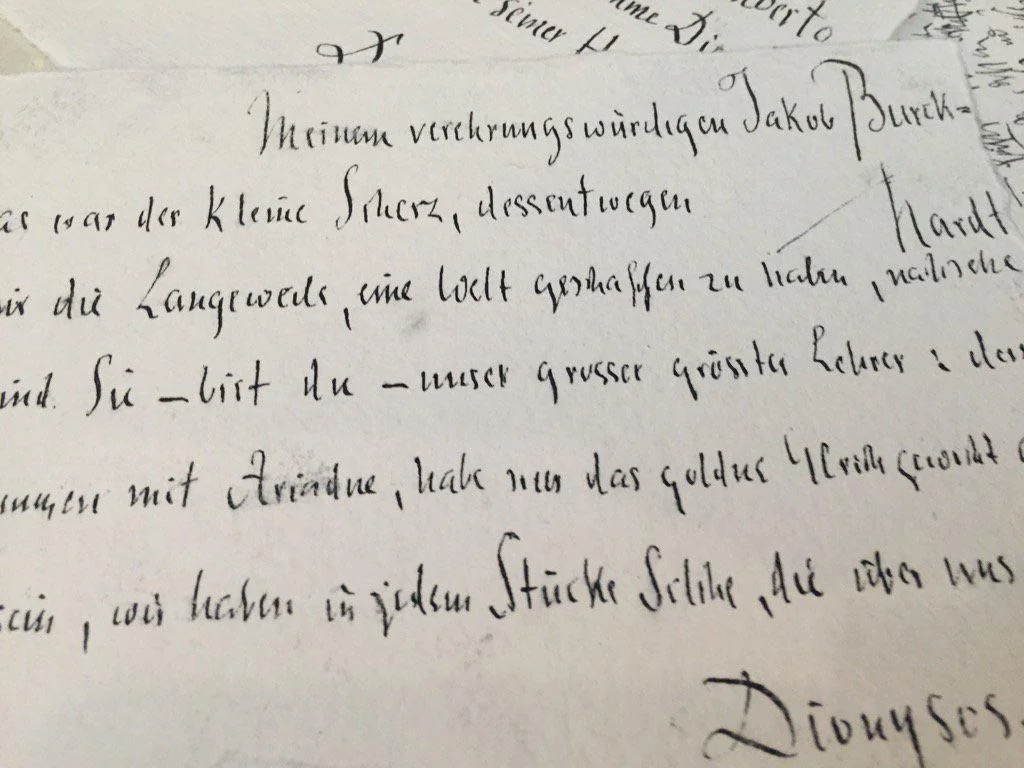 seiner
Meinem verehrungswürdigen Jakob Burck=
as war der kleine Scherz, dessentwegen
hardt
die Langeweile, eine Welt geschaffen zu haben, nachsehe
ind. Sie – bist du – unser grosser grösster Lehrer: denn
mit Ariadne, habe nur das goldne Gleichgewicht
sein, wir haben in jedem Stücke Solche, die über uns
Dionysos.